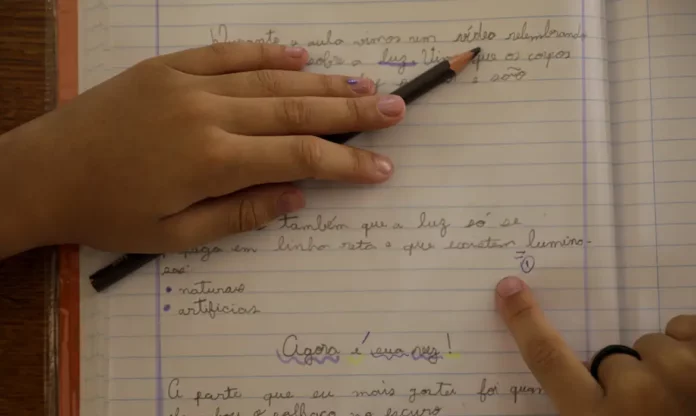 Durante a aula vimos um vídeo relembrando
sobre a luz. que os corpos
são
também que a luz só se
em linha reta e que existem lumino-
sos:
• naturais
• artificias
Agora é sua vez!
A parte que eu mais gostei foi quan
o palhaço no escuro